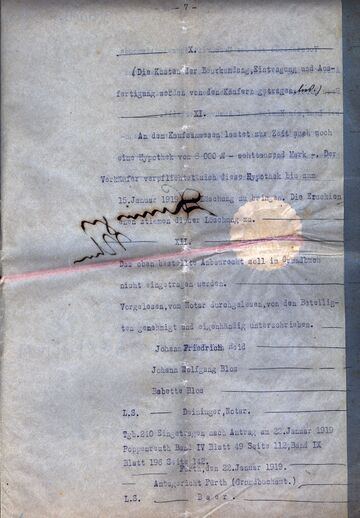 - 7 -
X.
(Die Kosten der Beurkundung, Eintragung und Aus-
fertigung werden von den Käufern getragen,
XI.
An dem Kaufsanwesen lastet zur Zeit auch noch
eine Hypothek von 8 000 M - achttausend Mark -. Der
Verkäufer verpflichtet sich diese Hypothek bis zum
15. Januar 1919 zur Löschung zu bringen. Die Erschien
enen stimmen dieser Löschung zu.
XII.
Das oben bestellte Anbaurecht soll im Grundbuch
nicht eingetragen werden.
Vorgelesen, vom Notar durchgelesen, von den Beteilig-
ten genehmigt und eigenhändig unterschrieben.
Johann Friedrich
Johann Wolfgang Blos
Babette Blos
L.S. — Deininger, Notar.
Tgb. 210 Eingetragen nach Antrag am 22. Januar 1919
Poppenreuth Band IV Blatt 49 Seite 112, Band IX
Blatt 196 Seite 142.
Fürth, den 22. Januar 1919.
Amtsgericht Fürth (Grundbuchamt.)
L.S.